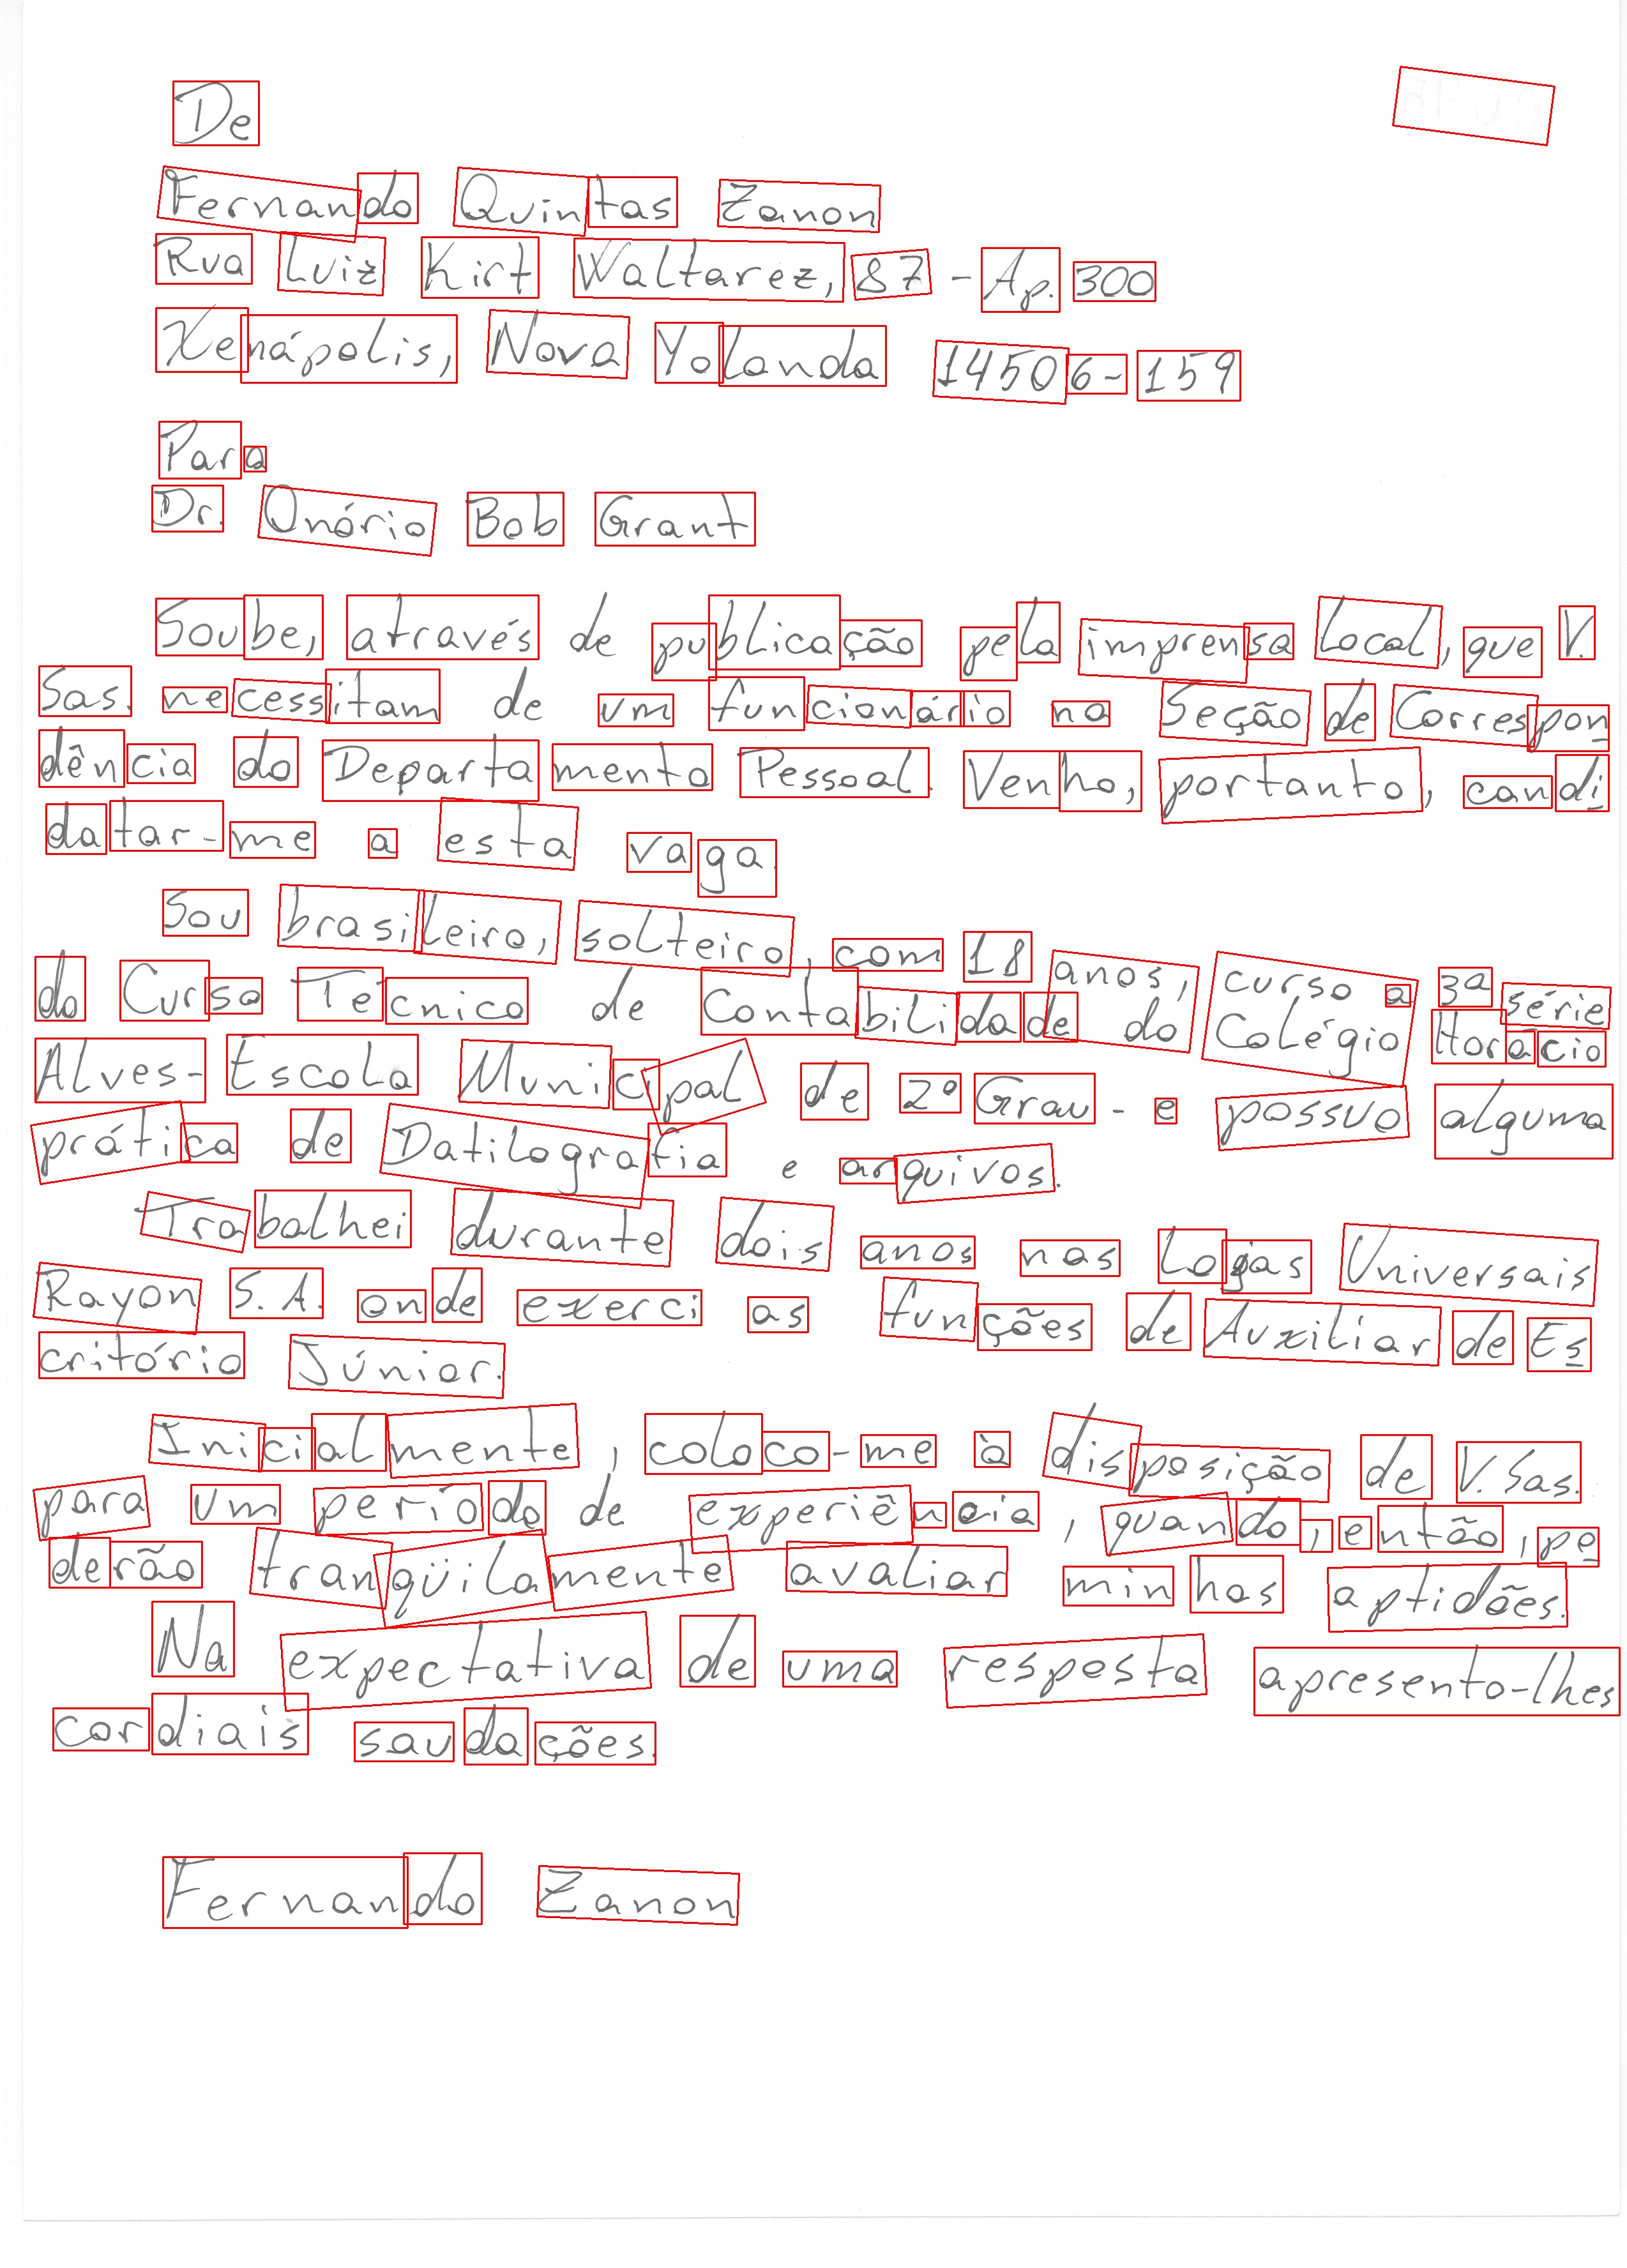 De
Fernando Quintas Zanon
Rua Luiz Kirt Waltarez, 87 - Ap. 300
Xenápolis, Nova Yolanda 14506-159
Para
Dr. Onório Bob Grant
Soube, através de publicação pela imprensa local, que V.
Sas. necessitam de um funcionário na Seção de Correspon
dência do Departamento Pessoal. Venho, portanto, candi
datar-me a esta vaga.
Sou brasileiro, solteiro, com 18 anos, curso a 3ª série
do Curso Técnico de Contabilidade do Colégio Horácio
Alves - Escola Municipal de 2º Grau - e possuo alguma
prática de Datilografia e arquivos.
Trabalhei durante dois anos nas Lojas Universais
Rayon S.A. onde exerci as funções de Auxiliar de Es
critório Júnior.
Inicialmente, coloco-me à disposição de V.Sas.
para um período de experiência, quando, então, po
derão tranqüilamente avaliar minhas aptidões.
Na expectativa de uma resposta apresento-lhes
cordiais saudações.
Fernando Zanon